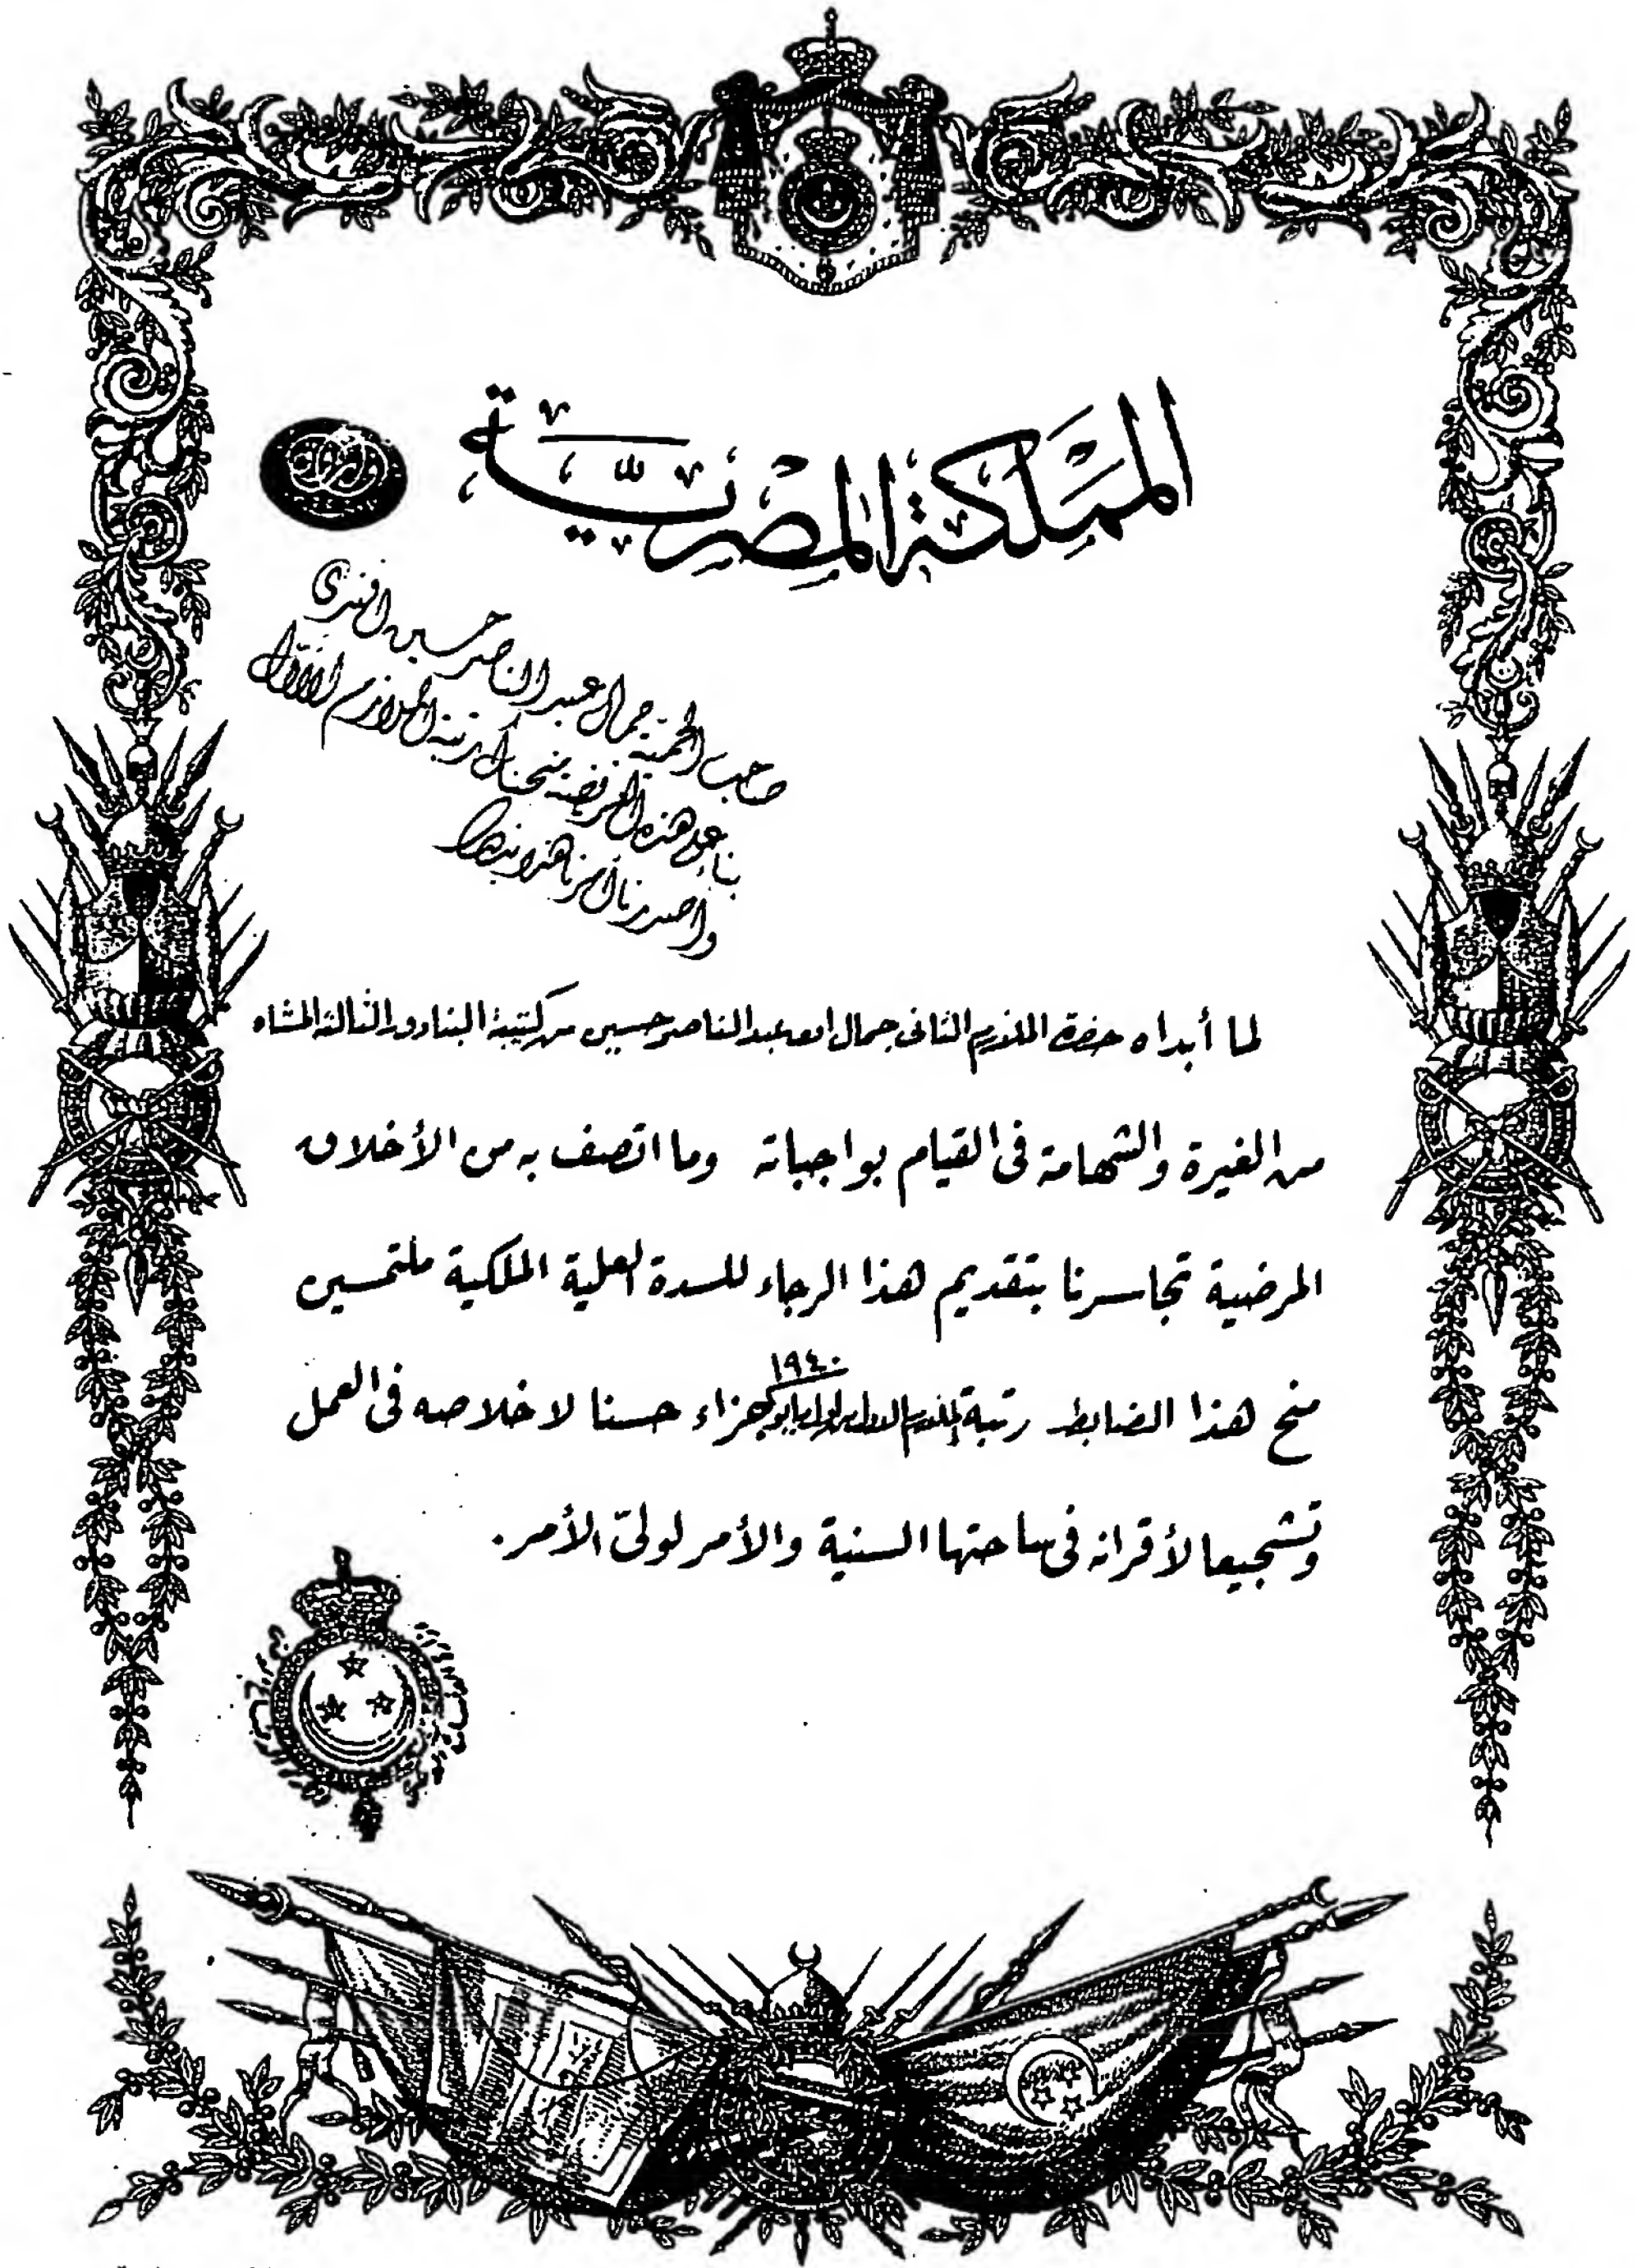 المملكة المصرية
صاحب الحمية جمال عبد الناصر حسين افندى
بناء على هذه العريضة منحناك رتبة الملازم الأول
واصدرنا أمرنا هذا بذلك
لما أبداه حضرة الملازم الثانى جمال عبد الناصر حسين من كتيبة البنادق الثالثة المشاه
من الغيرة والشهامة فى القيام بواجباته وما اتصف به من الأخلاق
المرضية تجاسرنا بتقديم هذا الرجاء للسدة العلية الملكية ملتمسين
١٩٤٠
منح هذا الضابط رتبة الملازم الاول جزاء حسنا لاخلاصه فى العمل
وتشجيعا لأقرانه فى ساحتها السنية والأمر لولىّ الأمر.